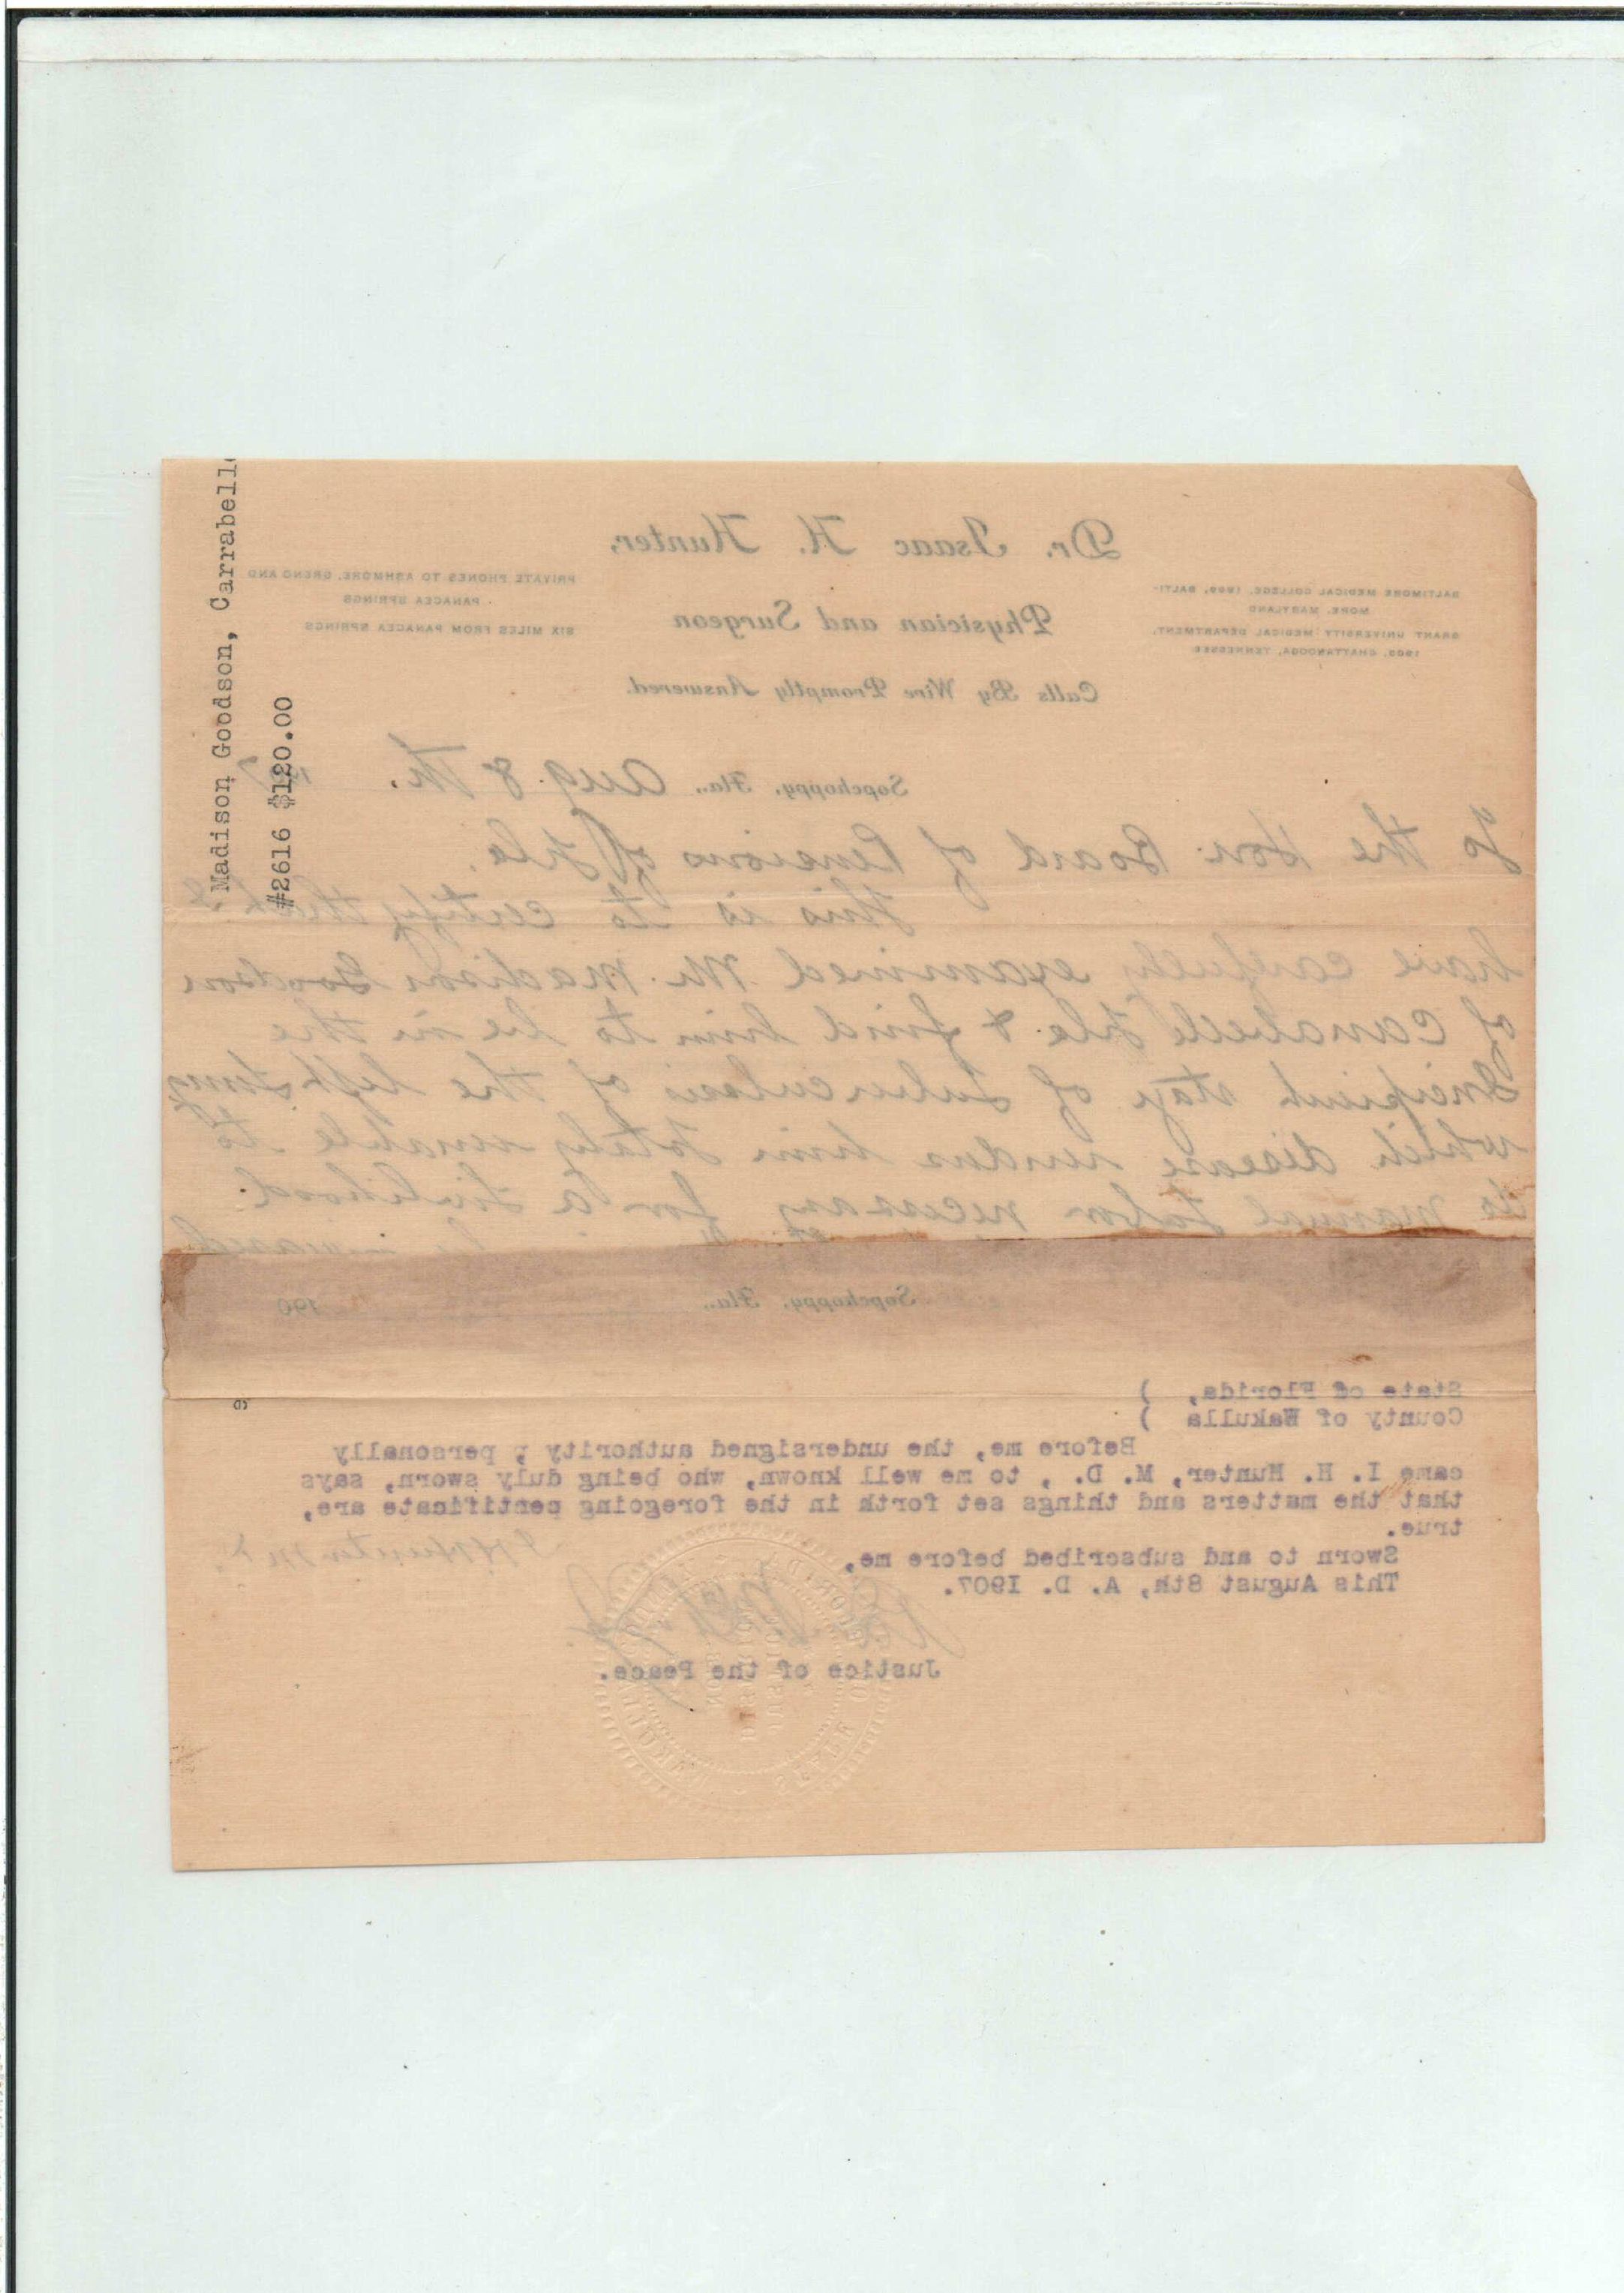 Madison Goodson, Carrabelle
#2616 $120.00
Dr. Isaac H. Hunter,
Physician and Surgeon
Calls By Wire Promptly Answered.
BALTIMORE MEDICAL COLLEGE, 1899, BALTI-
MORE, MARYLAND
GRANT UNIVERSITY MEDICAL DEPARTMENT,
1903, CHATTANOOGA, TENNESSEE
PRIVATE PHONES TO ASHMORE, GREND AND
PANACEA SPRINGS
SIX MILES FROM PANACEA SPRINGS
Sopchoppy, Fla., Aug. 8th. 1907
To the Hon. Board of Pensions of Fla.
This is to certify that I
have carefully examined Mr. Madison Goodson
of Carabell Fla & find him to be in the
Incipient stage of Tuberculosis of the left Lung
which disease renders him totaly unable to
do manual Labor necessary for a livlihood.
Sopchoppy, Fla., 190
State of Florida, )
County of Wakulla )
Before me, the undersigned authority, personally
came I. H. Hunter, M. D., to me well known, who being duly sworn, says
that the matters and things set forth in the foregoing certificate are,
true.
I H Hunter M D.
Sworn to and subscribed before me,
This August 8th, A. D. 1907.
Justice of the Peace.